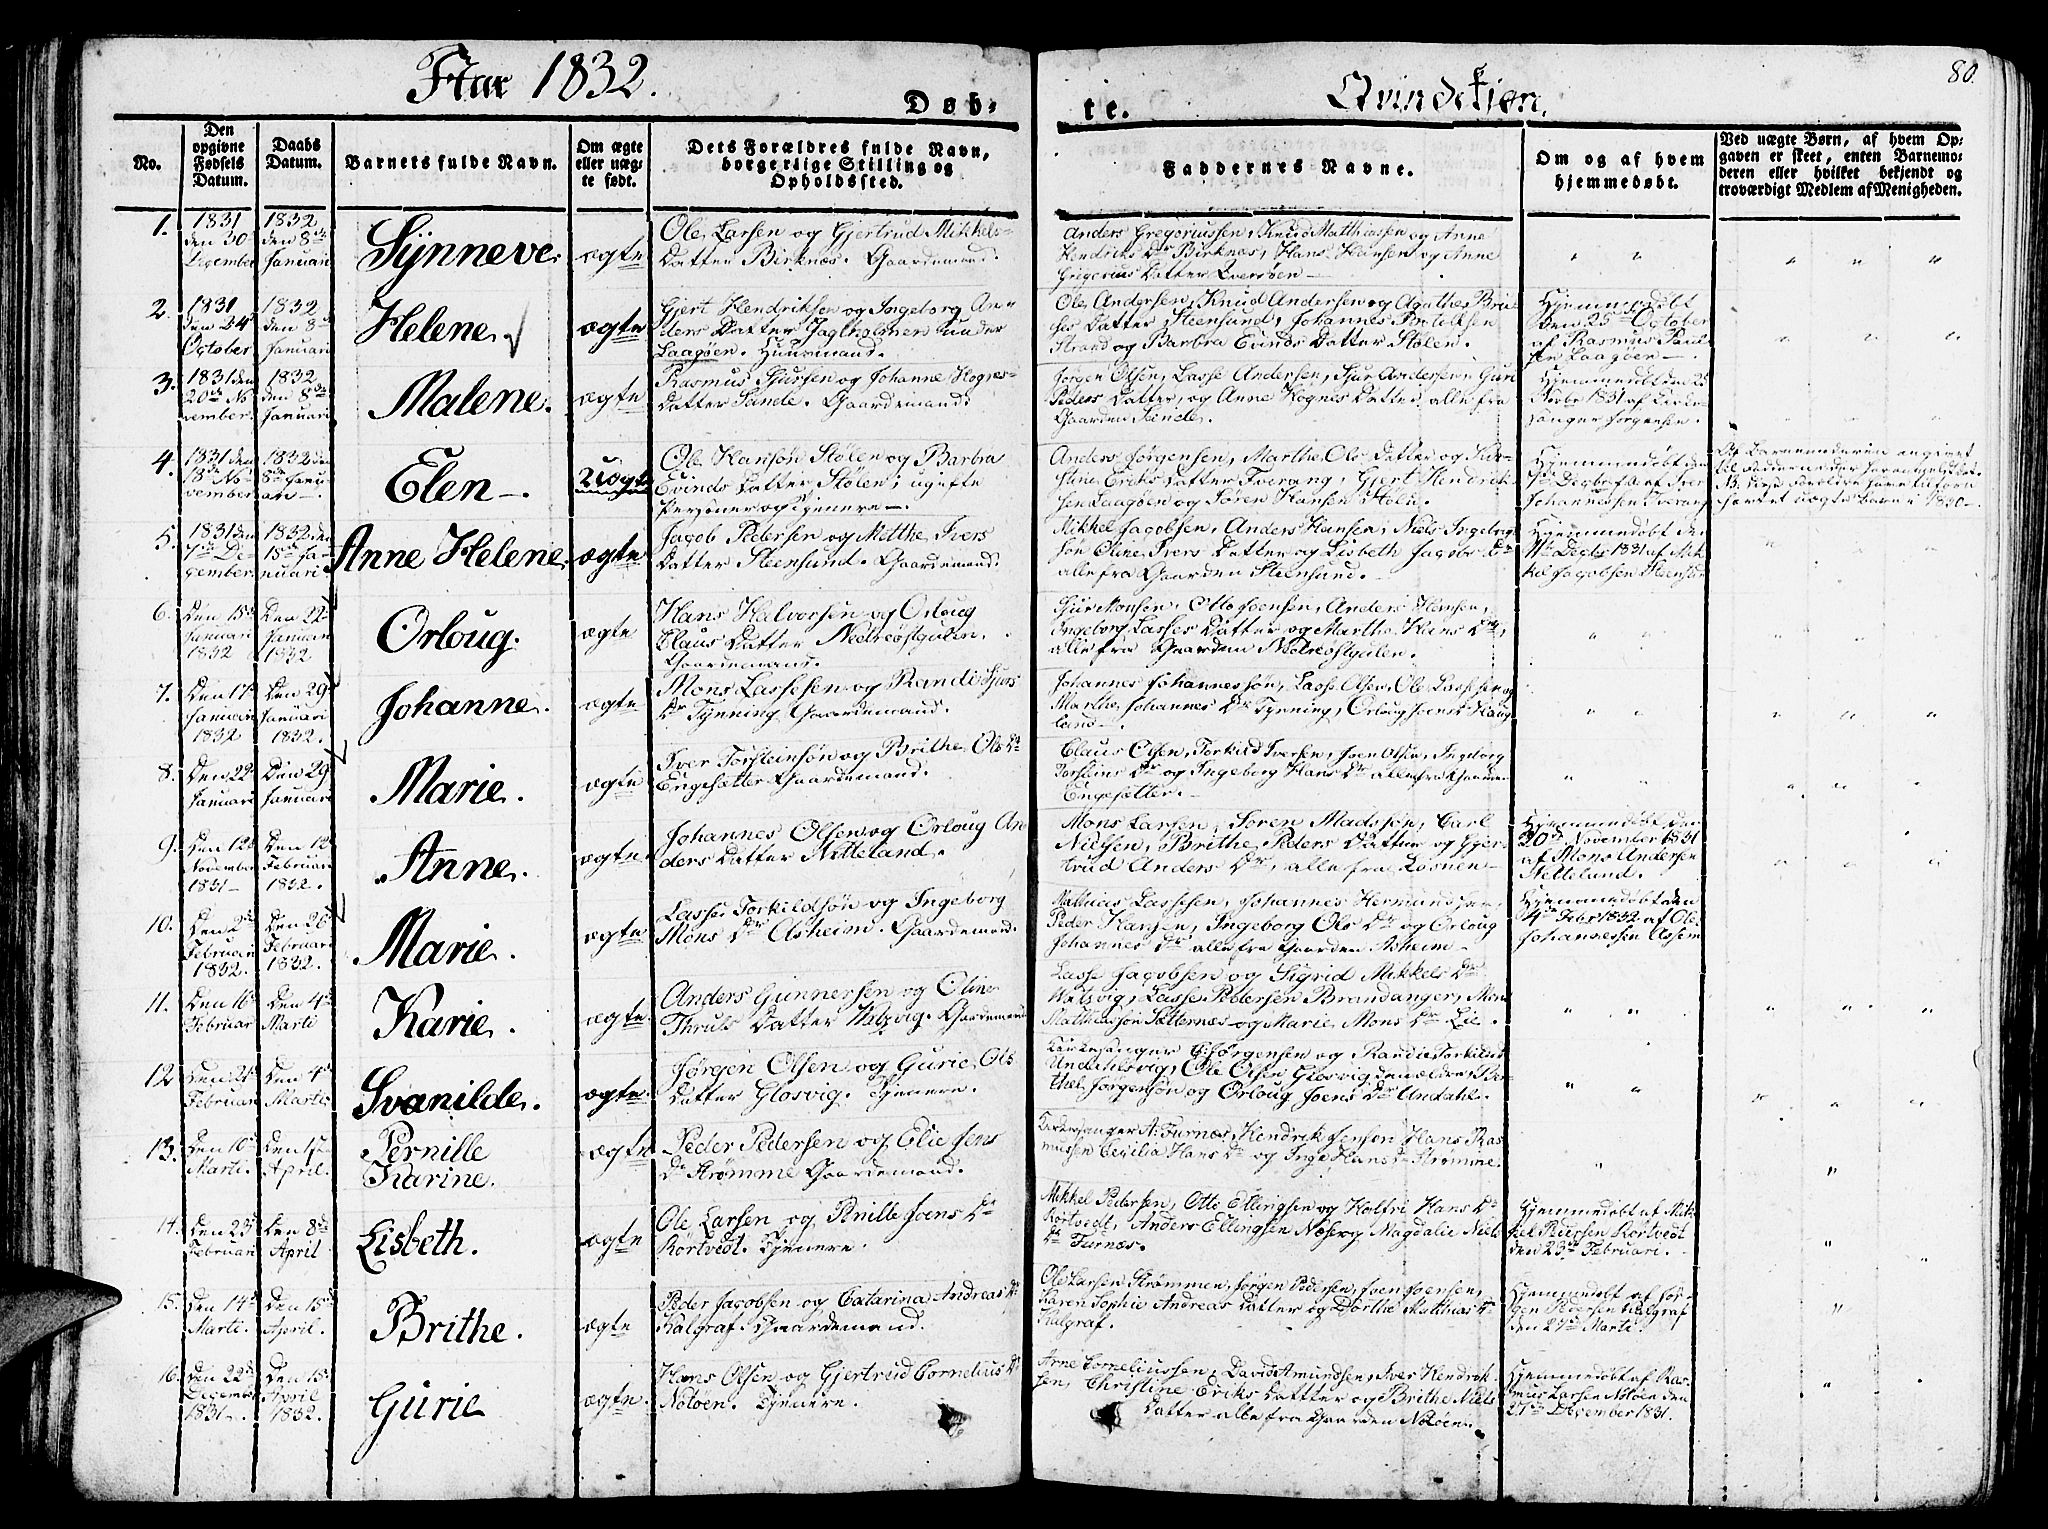 Aar 1832.
Døb-
te.
Qvindekiøn.
80
No.
Den opgivne Fødsels Datum.
Daabs Datum.
Barnets fulde Navn.
Om ægte eller uæg-
te født.
Dets Forældres fulde Navn,
borgerlige Stilling og
Opholdssted.
Faddernes Navne.
Om og af hvem
hjemmedøbt.
Ved uægte Børn, af hvem Op-
gaven er skeet, enten Barnemo-
deren eller hvilket bekjendt og
troværdigt Medlem af Menigheden.
1.
1831
den 30
December
1832
den 8de
Januari
Synneve
ægte
Ole Larsen og Gjertrud Mikkels-
Datter Birknæs. Gaardemand.
Anders Gregoriussen, Knud Matthiassen og Anne
Hendriks Dr Birknæs, Hans Hansen og Anne
Datter
2.
1831
October
1832
den 8de
Januari
Helene
ægte
Gjert Hendriksen og Ingeborg An-
ders Datter Jagholmen under
Laagøen. Huusmand.
Ole Andersen, Knud Andersen og Agathe Bri-
Datter Steensund, Johannes
Strand og Barbra Evinds Datter Stølen.
Hjemmedøbt
den 25de October
af Rasmus Paul-
sen Laagøen
3.
1831 den
20de No-
vember
1832
den 8de
Januari
Malene.
ægte
Rasmus Sjursen og Johanne Hognes-
Datter Sande. Gaardemand.
Jørgen Olsen, Lasse Andersen, Sjur Andersen, Guri
Peders Datter, og Anne Hognes Datter alle fra
Gaarden Sande.
Hjemmedøbt den 25
1831 af Kirke-
sanger Jørgensen.
4.
1831 den
18de No-
vember
1832 den
8de Janu-
ari
Elen
Uægte
Ole Hansøn Stølen og Barbra
Evinds Datter Stølen; ugifte
Personer og Tjenere.
Anders Jørgensen, Marthe Ols Datter og Kir-
stine Eriks Datter Tverang, Gjert Hendrik-
sen Laagøen og Søren Hansen Stølen.
Hjemmedøbt den
Johannessen
5.
1831 den
7de De-
cember
1832 den
15de Ja-
nuari
Anne Helene
ægte
Jacob Pedersen og Metthe Ivers
Datter Steensund. Gaardemand.
Mikkel Jacobsen, Anders Hansen, Niels Ingebrigt-
søn Oline Ivers Datter og Lisbeth Jacobs Dr
alle fra Gaarden Steensund.
Hjemmedøbt den
1831 af Mik-
kel Jacobsen Steensund
6.
Den 15de
Januari
1832
Den 22de
Januari
1832
Orloug.
ægte
Hans Halvorsen og Orloug
Claus Datter Nedreøstgulen.
Gaardemand.
Sjur Monsen, Otto Joensen, Anders Hansen,
Ingeborg Lasses Datter og Marthe Hans Dr,
alle fra Gaarden Nedreøstgulen.
7.
Den 17de
Januari
1832
Den 29de
Januari
1832.
Johanne.
ægte
Mons Lassesen og Randi Sjurs
Dr Tynning Gaardemand.
Johannes Johannessøn, Lasse Olsen, Ole Lassesen og
Marthe Johannes Dr Tynning, Orloug Joens Dr Haug-
land
8.
Den 22de
Januari
Den 29de
Januari
Marie.
ægte
Iver Torsteinsøn og Brithe Ols Dr
Engesætter Gaardemand.
Claus Olsen, Torkild Iversen, Joen Olsen, Ingeborg
Torsteins Dr og Ingeborg Hans Dr alle fra Gaarden
Engesætter.
9.
Den 12de
November
1831
Den 12de
Februari
1832.
Anne.
ægte.
Johannes Olsen og Orloug An-
ders Datter Nitteland.
Mons Larsen, Søren Madssøn, Carl
Nilsen, Brithe Peders Datter og Gjer-
trud Anders Dr, alle fra Losnen
Hjemmedøbt den
30de November 1831
af Mons Andersen
Netteland.
10.
Den 2de
Februari
1832.
Den 26de
Februari
1832.
Marie.
ægte
Lasse Torkildsøn og Ingeborg
Mons Dr Asheim. Gaardemand.
Mathias Lassesen, Johannes Hermundsen,
Peder Hansen, Ingeborg Ols Dr og Orloug
Johannes Dr alle fra Gaarden Asheim
Hjemmedøbt den
4de Febr 1832 af Ole
Johannessen Assem
11.
Den 16de
Februar
Den 4de
Marti
Karie.
ægte.
Anders Gunnersen og Oline
Thruls Datter Hatsvig. Gaardemand
Lasse Jacobsen og Sigrid Mikkels Dr
Hatsvig, Lasse Pedersen Brandanger, Mons
Matthiassøn Sætternæs og Marie Mons Dr Lie.
12
Den 21de
Februari
Den 4de
Marti
Svanilde.
ægte.
Jørgen Olsen og Gurie Ols
Datter Glosvig. Tjenere.
Kirkesanger Jørgensen og Randie Torkilds
Ole Olsen Glosvig den ældre, Ber-
thel Jørgensøn og Orloug Joens Dr Undahl.
13.
Den 10de
Marti
Den 1ste
April.
Pernille
Karine.
ægte
Peder Pedersen og Elie Jens
Dr Strømme Gaardemand.
Kirkesanger A. Furnæs, Hendrik Jensøn, Hans Ras-
mussen Cecilia Hans Dr og Inge Hans Dr Strømme.
14.
Den 23de
Februari
Den 8de
April
Lisbeth.
ægte
Ole Larsen og Pernille Joens Dr
Kortvedt. Tjenere.
Mikkel Pedersen, Otti Ellingsen og Holfri Hans Dr
Kortvedt, Anders Ellingsen Næse og Magdalie Niels
Dr Furnæs.
Hjemmedøbt af Mik-
kel Pedersen Kortvedt
den 23de Februari.
15.
Den 14de
Marti
Den 15de
April.
Brithe.
ægte
Peder Jacobsen og Catarina Andreas Dr
Kalgraf. Gaardemand.
Ole Larsen Strømmen, Jørgen Pedersen, Joen Joensen,
Karen Sophie Andreas Datter og Dorthe Matthias Dr
Kalgraf.
Hjemmedøbt af Jør-
gen Pedersen Kalgraf
den 27de Marti.
16.
Den 22de
December
1831.
Den 15de
April
1832.
Gurie
ægte.
Hans Olsen og Gjertrud Cornelius Dr
Notøen. Tjenere.
Arne Corneliussen, David Amundsen, Iver Hendrik-
sen, Christine Eriks Datter og Brithe Niels
Datter alle fra Gaarden Notøen.
Hjemmedøbt af Ras-
mus Larsen Notøen den
27de December 1831.